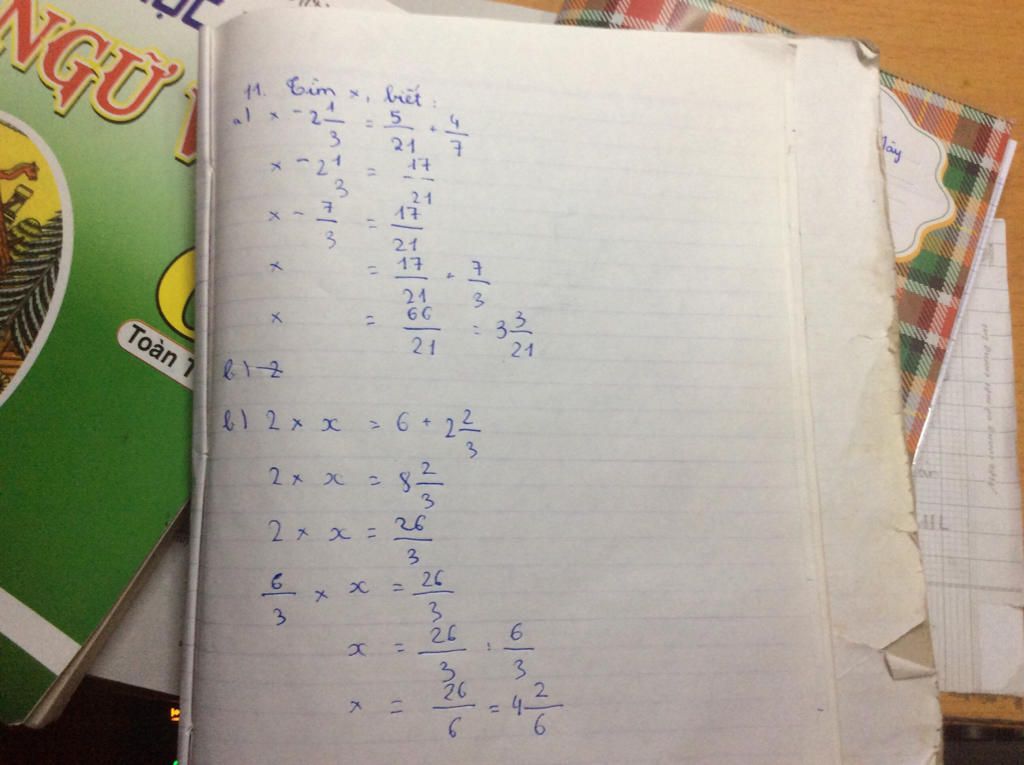 NGỮ
Toàn 1
11. Tìm x, biết :
a) x - 2 1/3 = 5/21 + 4/7
x - 2 1/3 = 17/21
x - 7/3 = 17/21
x = 17/21 + 7/3
x = 66/21 = 3 3/21
b) 2
b) 2 × x = 6 + 2 2/3
2 × x = 8 2/3
2 × x = 26/3
6/3 × x = 26/3
x = 26/3 : 6/3
x = 26/6 = 4 2/6